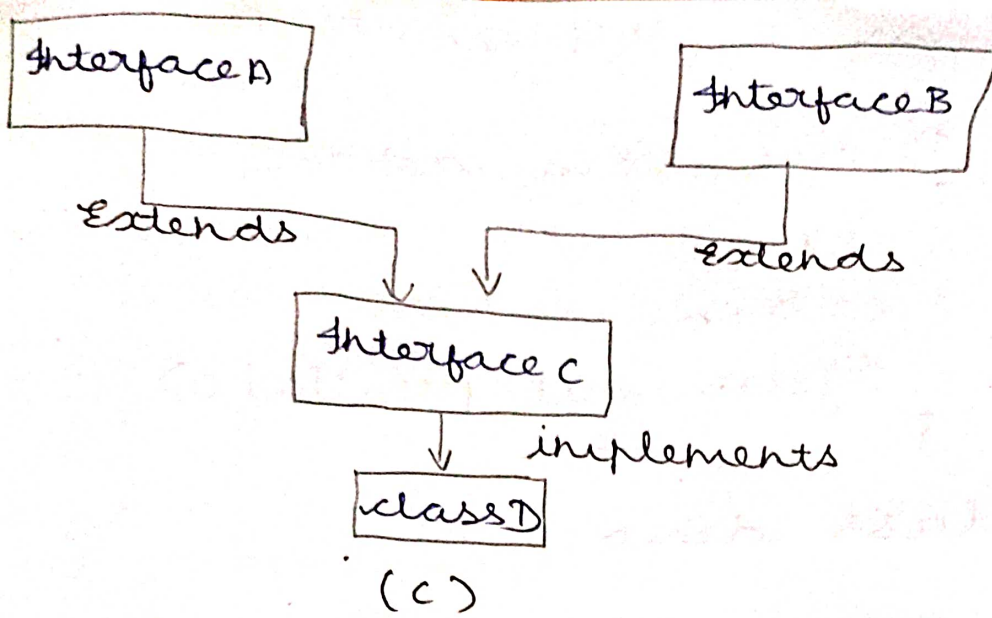 InterfaceA
InterfaceB
Extends
Extends
Interface C
implements
classD
(C)